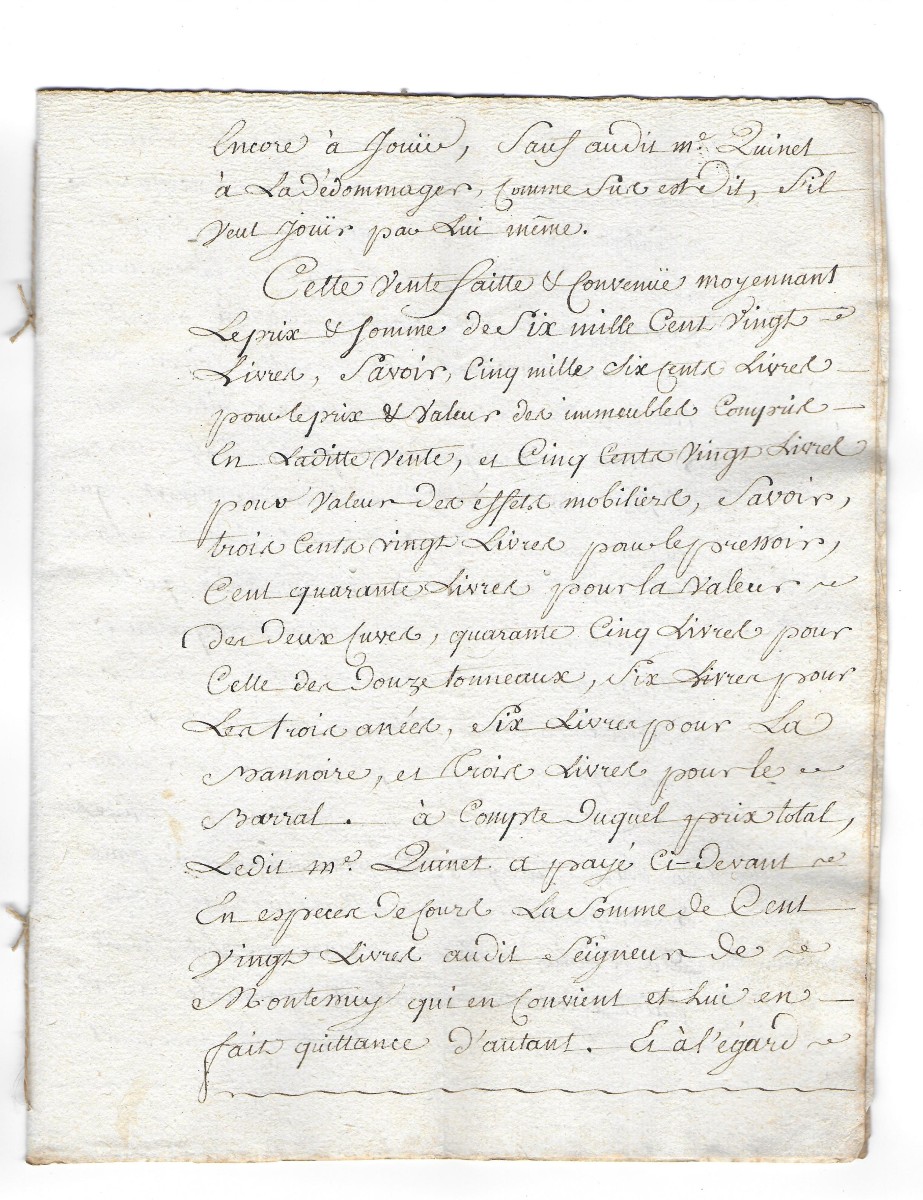 Encore à Jouir, Sauf audit mᵉ. Quinet
à La dédommager, Comme Sus est Dit, S'il
Veut Jouïr par Lui même.
Cette Vente faitte & Convenüe moyennant
Le prix & somme de Six mille Cent Vingt
Livres, Savoir, Cinq mille Six Cents Livres
pour le prix & Valeur des immeubles Compris
En Laditte Vente, et Cinq Cents Vingt Livres
pour Valeur des éffets mobiliers, Savoir,
trois Cents vingt Livres pour le pressoir,
Cent quarante Livres pour la Valeur
des deux Cuves, quarante Cinq Livres pour
Celle des Douze tonneaux, Six Livres pour
Les trois anées, Six Livres pour La
Bannoire, et trois Livres pour le
Barral. à Compte Duquel prix total,
Ledit mᵉ. Quinet a payé Ci-devant
En especes de Cours La Somme de Cent
Vingt Livres audit Seigneur de
Montemuy qui en Convient et Lui en
fait quittance d'autant. Et à l'égard